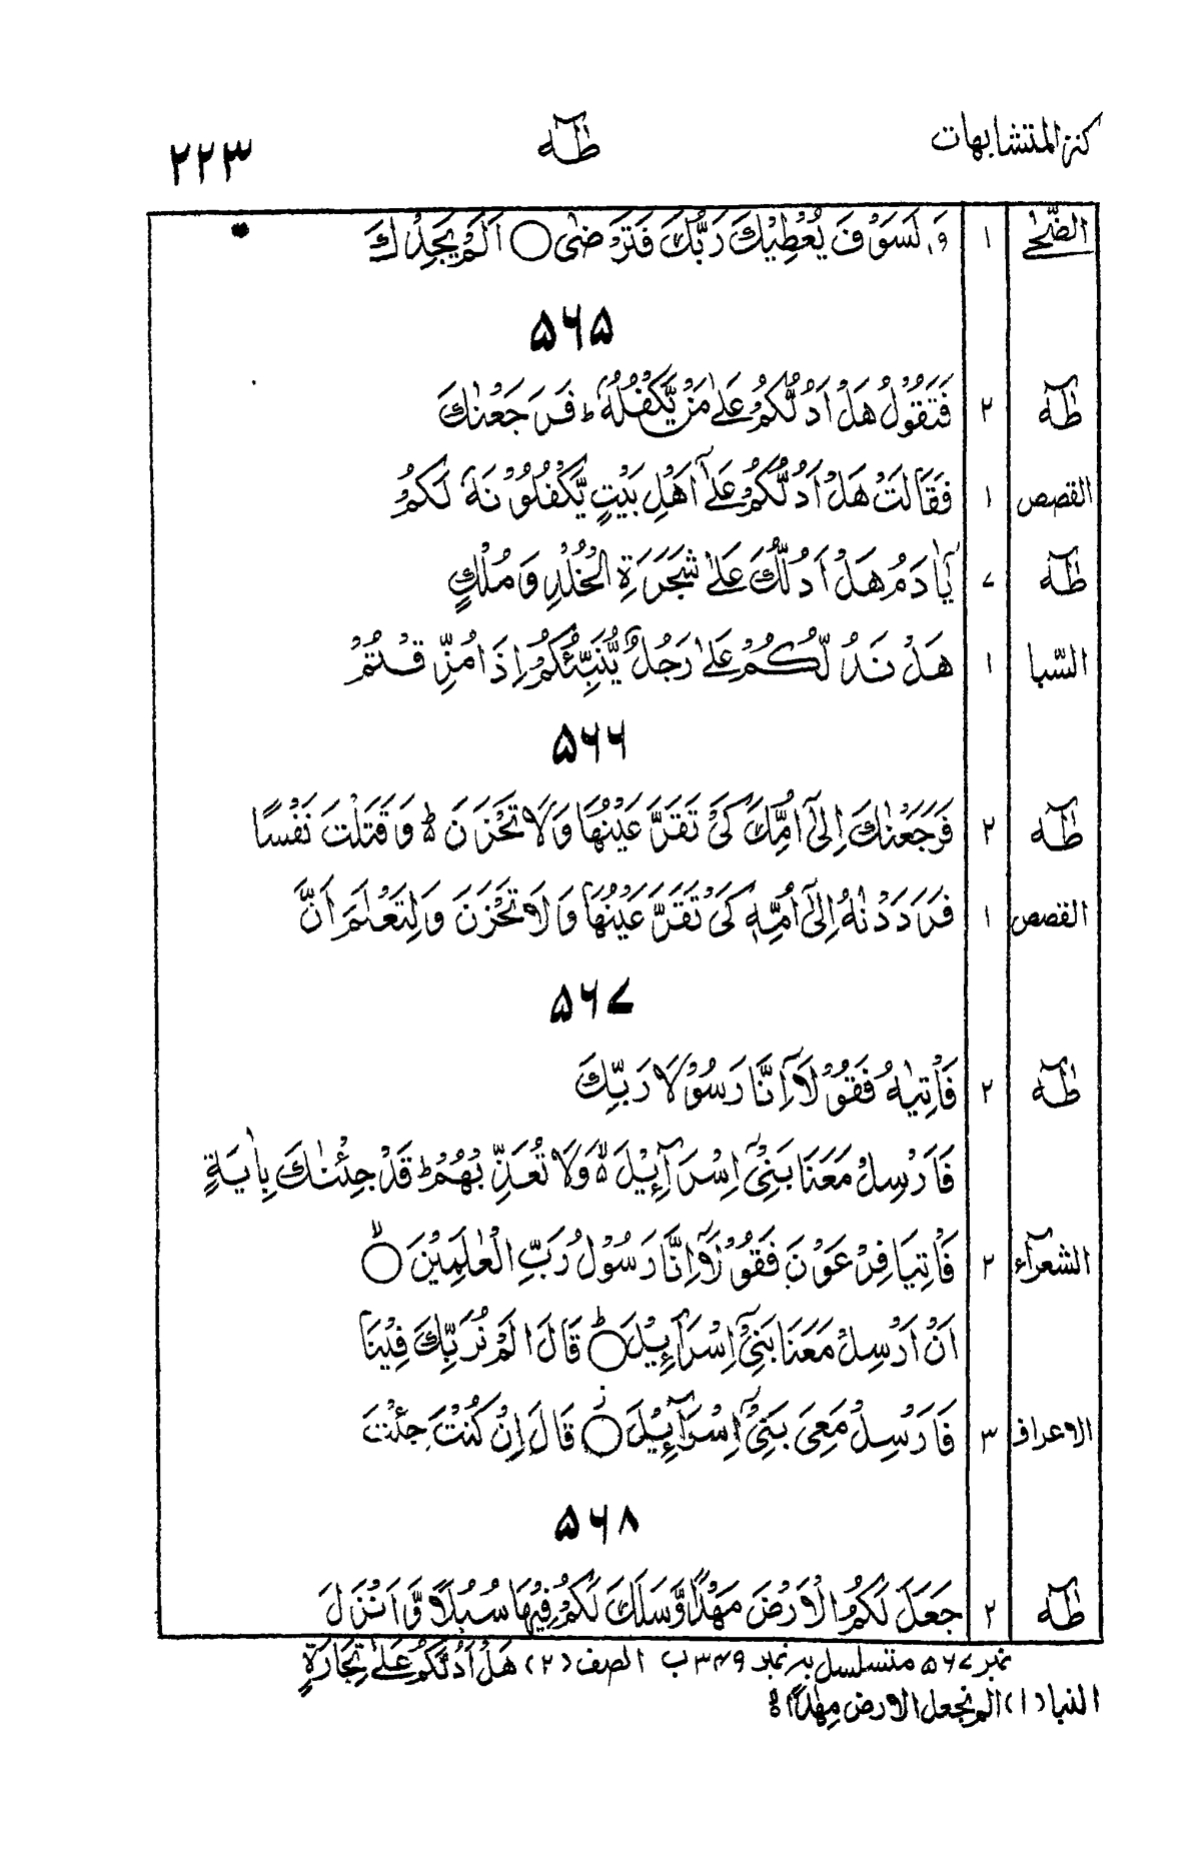 كنز المتشابهات طٰهٰ ۲۲۳
الضّحٰى ۱ وَلَسَوْفَ يُعْطِيْكَ رَبُّكَ فَتَرْضٰى ○ اَلَمْ يَجِدْكَ *
۵۶۵
طٰهٰ ۲ فَتَقُوْلُ هَلْ اَدُلُّكُمْ عَلٰى مَنْ يَّكْفُلُهٗ ؕ فَرَجَعْنٰكَ
القصص ۱ فَقَالَتْ هَلْ اَدُلُّكُمْ عَلٰٓى اَهْلِ بَيْتٍ يَّكْفُلُوْنَهٗ لَكُمْ
طٰهٰ ۷ يٰٓاٰدَمُ هَلْ اَدُلُّكَ عَلٰى شَجَرَةِ الْخُلْدِ وَمُلْكٍ
السّبا ۱ هَلْ نَدُلُّكُمْ عَلٰى رَجُلٍ يُّنَبِّئُكُمْ اِذَا مُزِّقْتُمْ
۵۶۶
طٰهٰ ۲ فَرَجَعْنٰكَ اِلٰٓى اُمِّكَ كَيْ تَقَرَّ عَيْنُهَا وَلَا تَحْزَنَ ؕ وَقَتَلْتَ نَفْسًا
القصص ۱ فَرَدَدْنٰهُ اِلٰٓى اُمِّهٖ كَيْ تَقَرَّ عَيْنُهَا وَلَا تَحْزَنَ وَلِتَعْلَمَ اَنَّ
۵۶۷
طٰهٰ ۲ فَاْتِيٰهُ فَقُوْلَآ اِنَّا رَسُوْلَا رَبِّكَ
فَاَرْسِلْ مَعَنَا بَنِيْٓ اِسْرَآءِيْلَ ۙ وَلَا تُعَذِّبْهُمْ ؕ قَدْ جِئْنٰكَ بِاٰيَةٍ
الشعرآء ۲ فَاْتِيَا فِرْعَوْنَ فَقُوْلَآ اِنَّا رَسُوْلُ رَبِّ الْعٰلَمِيْنَ ○ۙ
اَنْ اَرْسِلْ مَعَنَا بَنِيْٓ اِسْرَآءِيْلَ ○ؕ قَالَ اَلَمْ نُرَبِّكَ فِيْنَا
الاعراف ۳ فَاَرْسِلْ مَعِيَ بَنِيْٓ اِسْرَآءِيْلَ ○ؕ قَالَ اِنْ كُنْتَ جِئْتَ
۵۶۸
طٰهٰ ۲ جَعَلَ لَكُمُ الْاَرْضَ مَهْدًا وَّسَلَكَ لَكُمْ فِيْهَا سُبُلًا وَّاَنْزَلَ
نمبر ۵۶۷ متسلسل بہ نمبر ۳۴۹ ب الصف (۲) هَلْ اَدُلُّكُمْ عَلٰى تِجَارَةٍ
النبا (۱) الم نجعل الارض مِهٰدًا ۙ